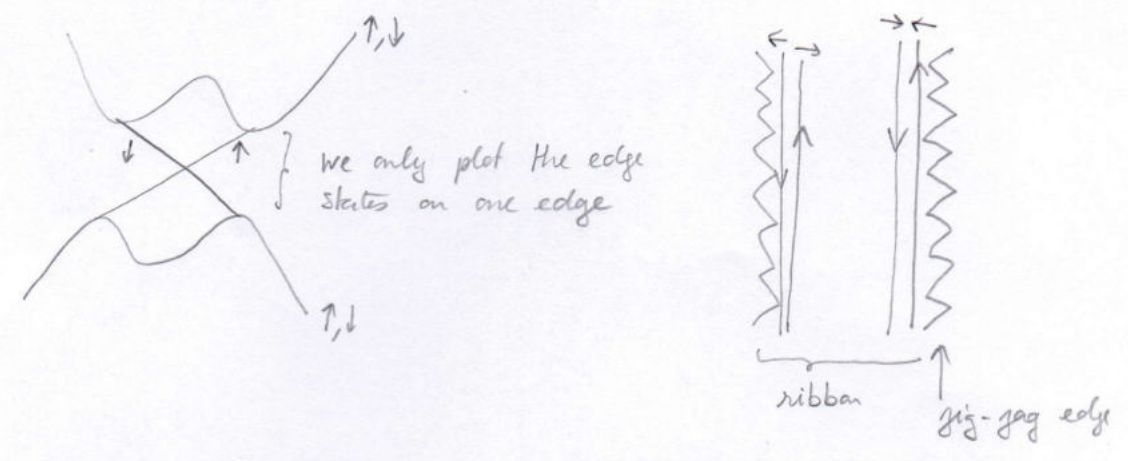 ↑,↓
↓ ↑
we only plot the edge
states on one edge
↑,↓
ribbon
zig-zag edge